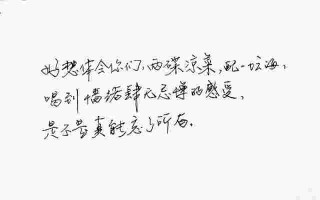 好想体会你们,两碟凉菜,配一坛海,
喝到情绪肆无忌惮的感受,
是不是真能忘了所有.